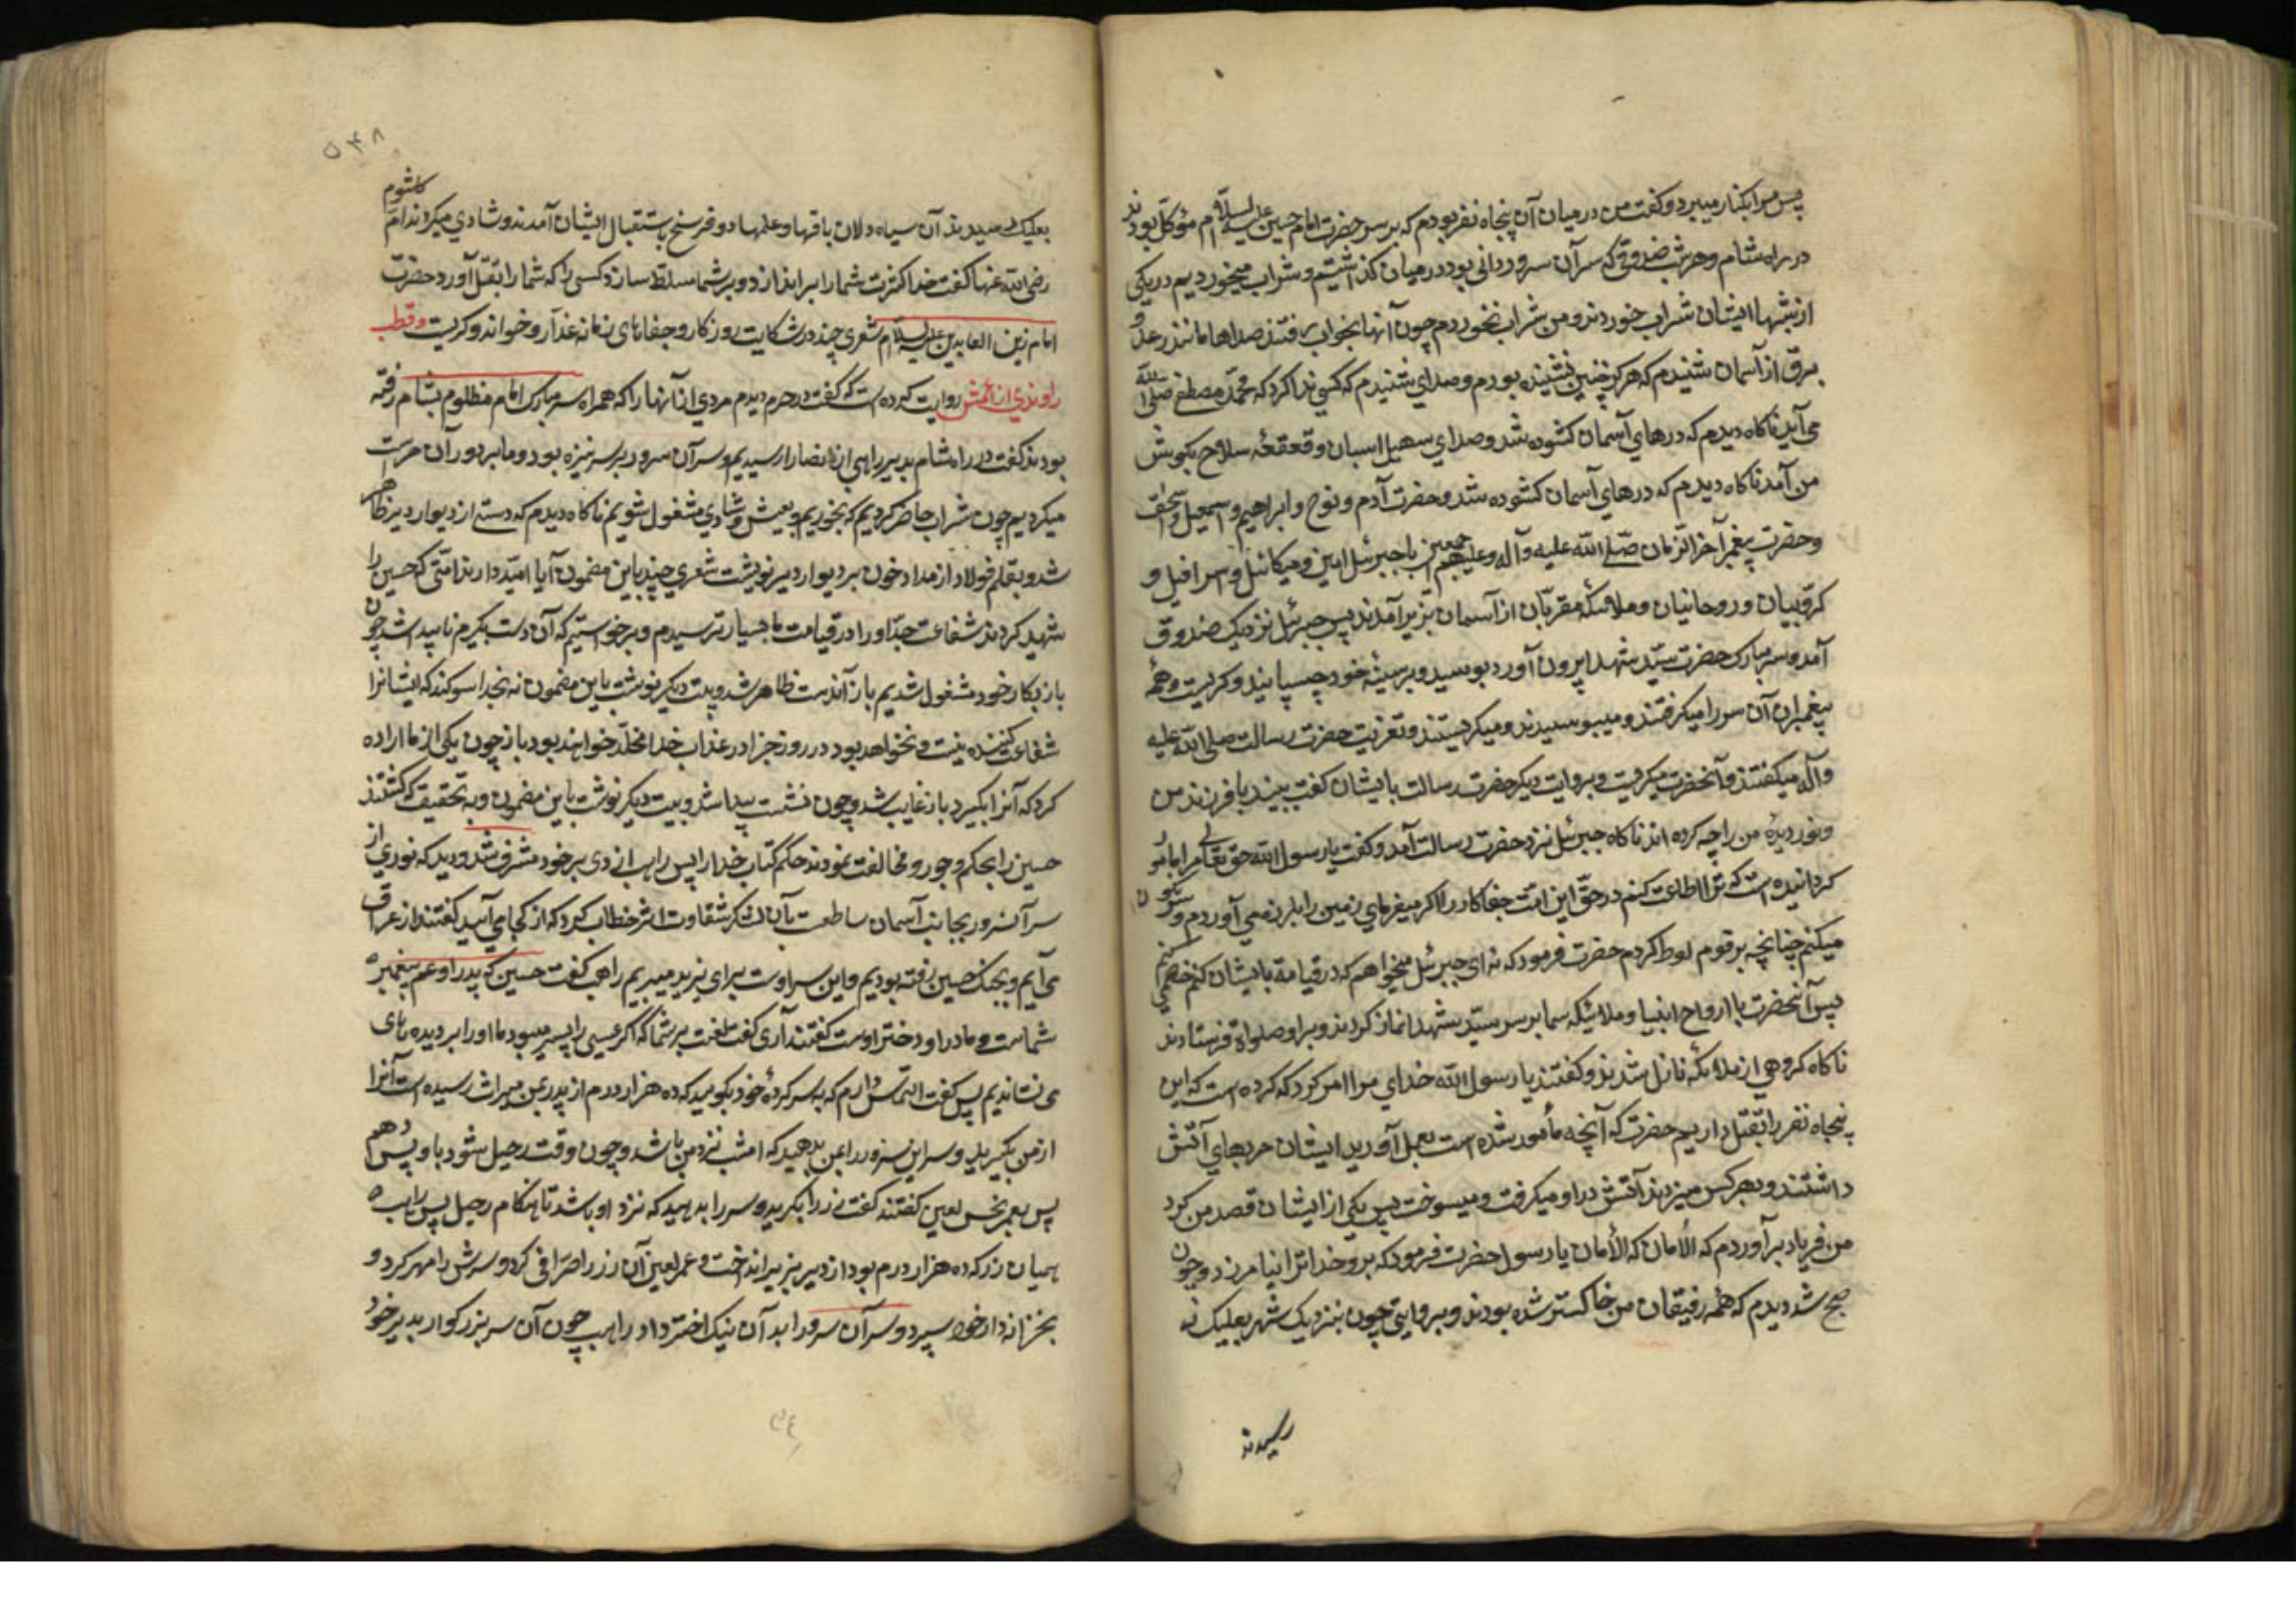 پس مرا بکنار میبرد و گفت من در میان آن پنجاه نفر بودم که بر سر حضرت امام حسین علیه السلام مؤکل بودند
در راه شام و هر شب صندوقی که سر آن سرور در آنی بود در میان گذاشتیم و شراب میخوردیم در یکی
از شبها ایشان شراب خوردند و من شراب نخوردم چون آنها بخواب رفتند صداها مانند رعد و
برق از آسمان شنیدم که هرگز چنین نشنیده بودم و صدای شنیدم که کسی ندا کرد که محمد مصطفی صلی الله
می آید ناکاه دیدم که درهای آسمان کشوده شد و صدای سهیل اسبان و قعقعهٔ سلاح بگوش
من آمد ناکاه دیدم که درهای آسمان کشوده شد و حضرت آدم و نوح و ابراهیم و اسمعیل و اسحق
و حضرت پیغمبر آخر الزمان صلی الله علیه و آله و علیهم اجمعین با جبرئیل امین و میکائیل و اسرافیل و
کروبیان و روحانیان و ملائکه مقربان از آسمان بزیر آمدند پس جبرئیل نزدیک صندوق
آمد و سر مبارک حضرت سید شهدا بیرون آورد بوسید و بر سینهٔ خود چسپانید و کریست و همه
پیغمبران آن سر را میکرفتند و میبوسیدند و میکریستند و تعزیت حضرت رسالت صلی الله علیه
و آله میکفتند و آنحضرت میکریست و بروایت دیکر حضرت رسالت بایشان کفت ببیند با فرزند من
و نور دیدهٔ من را چه کرده اند ناکاه جبرئیل نزد حضرت رسالت آمد و کفت یا رسول الله حق تعالی مرا مامور
کردانیده است که ترا اطاعت کنم در حق این امت جفاکار را اکر میفرمای زمین را بلرزه می آوردم و سرنکون
میکنم چنانچه بر قوم لوط کردم حضرت فرمود که نه ای جبرئیل میخواهم که در قیامة بایشان کنم خصمی
پس آنحضرت با ارواح انبیا و ملائیکه سما بر سر سید شهدا نماز کردند و بر او صلواة فرستادند
ناکاه کروهی از ملائکه نازل شدند و کفتند یا رسول الله خدای مرا امر کرد که کرده است که این
پنجاه نفر را بقتل داریم حضرت که آنچه مأمور شده است بعمل آورید ایشان حربهای آتش
داشتند و بهر کس میزدند آتش در او میکرفت و میسوخت پس یکی از ایشان قصد من کرد
من فریاد برآوردم که الأمان که الأمان یا رسول حضرت فرمود که برو خدا ترا نیامرزد و چون
صبح شد دیدم که همه رفیقان من خاکستر شده بودند و بروایتی چون بنزدیک شهر بعلبک
رسیدند
۵۴۸
بعلبک رسیدند آن سیاه دلان با قها و علمها دو فرسخ باستقبال ایشان آمدند و شادی میکردند ام کلثوم
رضی الله عنها کفت خدا کثرت شما را براندازد و بر شما مسلط سازد کسی را که شما را بقتل آورد حضرت
امام زین العابدین علیه السلام شعری چند در شکایت روزکار و جفاهای زمانه غدار و خواند و کریست و قطب
راوندی از اعمش روایت کرده است که کفت در حرم دیدم مردی از آنها را که همراه سر مبارک امام مظلوم بشام رفته
بودند کفت در راه شام بدیر راهبی از نصارا رسیدیم و سر آن سرور بر سر نیزه بود و ما بر دور آن حراست
میکردیم چون شراب حاضر کردیم که بخوریم و بعیش و شادی مشغول شویم ناکاه دیدم که دستی از دیوار دیر ظاهر
شد و بقلم فولاد از مداد خون بر دیوار دیر نوشت شعری چند باین مضمون آیا امید دارند امتی که حسین را
شهید کردند شفاعت جد او را در قیامت ما بسیار ترسیدم و برخواستیم که آن دست بکیرم ناپید اشد چون
باز بکار خود مشغول شدیم باز آندست ظاهر شد و بیت دیکر نوشت باین مضمون نه بخدا سوکند که ایشانرا
شفاعت کننده نیست و نخواهد بود در روز جزا در عذاب خدا مخلد خواهند بود باز چون یکی از ما اراده
کرد که آنرا بکیرد باز غایب شد و چون نشست پیدا شد و بیت دیکر نوشت باین مضمون و بتحقیق که کشتند
حسین را بحکم و جور و مخالفت نمودند حکم کتاب خدا را پس راهب از دیر خود مشرف شد و دید که نوری از
سر آنسرور بجانب آسمان ساطعت بآن لشکر شقاوت اثر خطاب کرد که از کجا می آیید کفتند از عراق
می آیم و بجنک حسین رفته بودیم و این سر اوست برای یزید میبریم راهب کفت حسین که پدر او عم پیغمبر
شماست و مادر او دختر اوست کفتند آری کفت لعنت بر شما که اکر عیسی را پسر میبود ما او را بر دیده های
می نشاندیم پس کفت التماس دارم که به سر کردهٔ خود بکویید که ده هزار درم از پدر بمن میراث رسیده است آنرا
از من بکیرید و سر این سرور را بمن بدهید که امشب نزد من باشد و چون وقت رحیل شود باو پس دهم
پس بعمر نحس لعین کفتند کفت زر را بکیرید و سر را بدهید که نزد او باشد تا هنکام رحیل پس راهب
همیان زر که ده هزار درم بود از دیر بزیر انداخت و عمر لعین آن زر را صرافی کرد و سرش را مهر کرد و
بخزانه دار خود سپرد و سر آن سرور را بدآن نیک اختر داد راهب چون آن سر بزرکوار بدیر خود